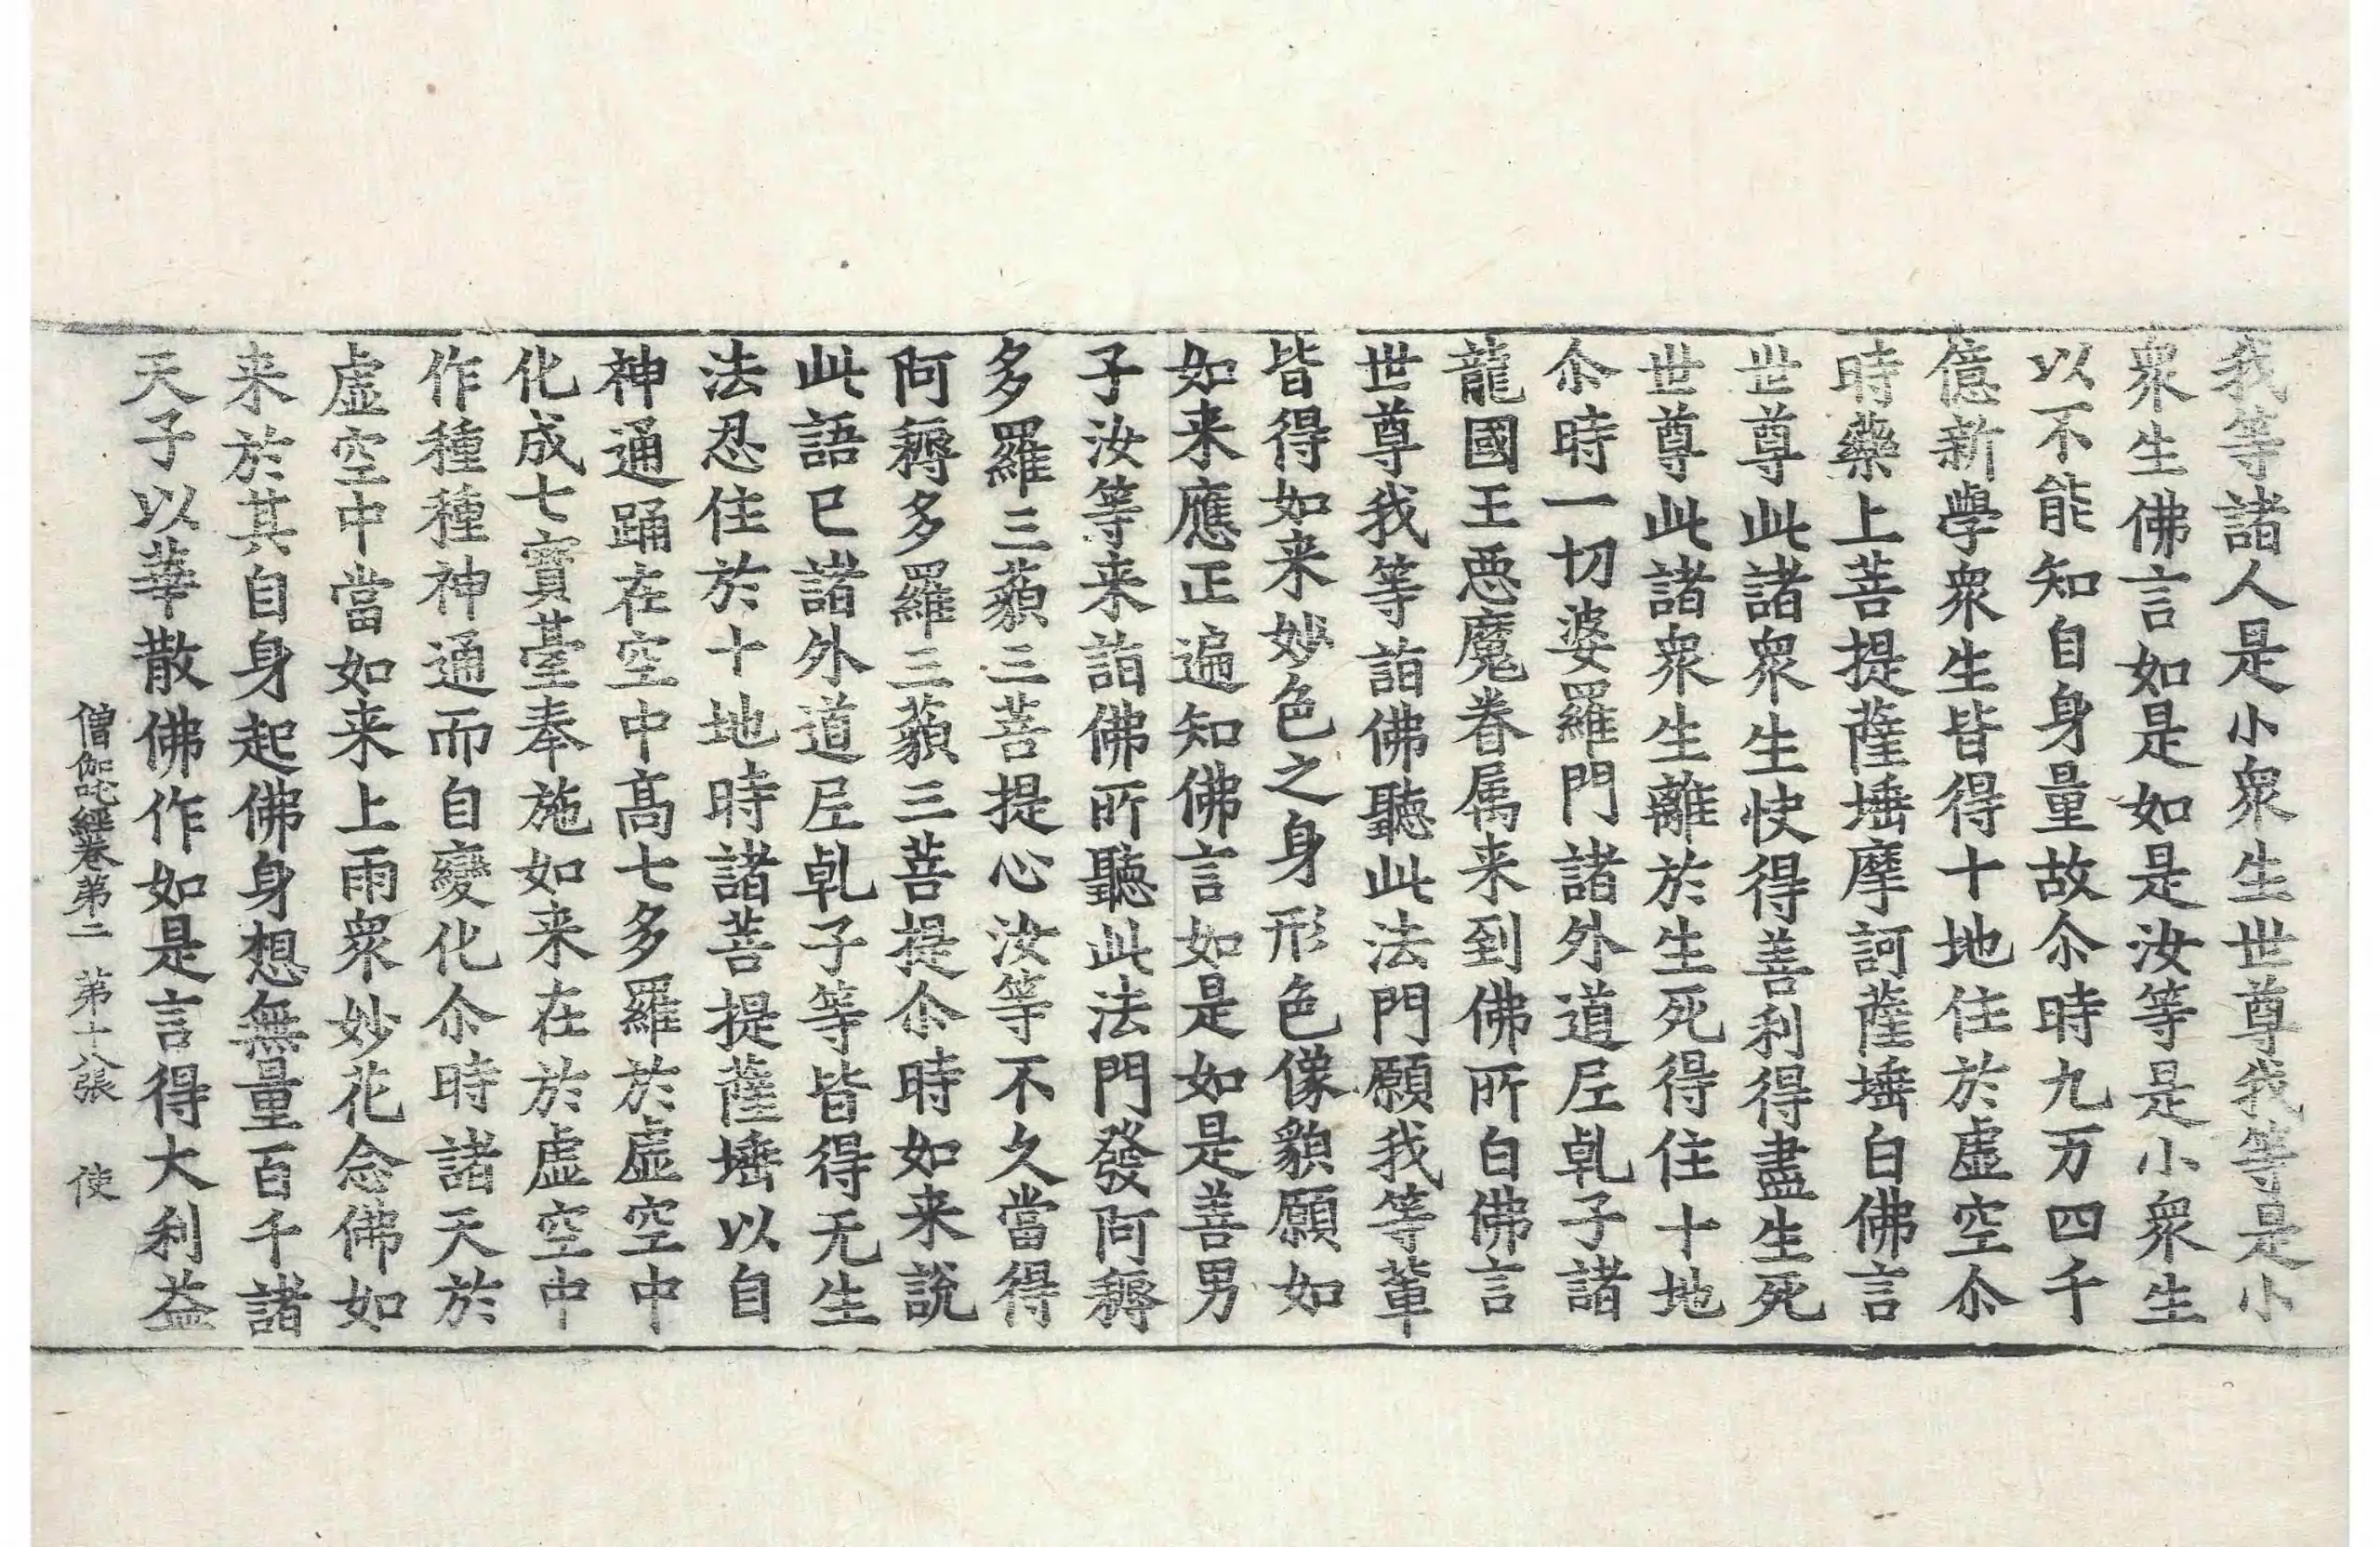 我等諸人是小衆生世尊我等是小
衆生佛言如是如是汝等是小衆生
以不能知自身量故尒時九万四千
億新學衆生皆得十地住於虛空尒
時藥上菩提薩埵摩訶薩埵白佛言
世尊此諸衆生快得善利得盡生死
世尊此諸衆生離於生死得住十地
尒時一切婆羅門諸外道尼乹子諸
龍國王惡魔眷属来到佛所白佛言
世尊我等詣佛聽此法門願我等輩
皆得如来妙色之身形色像貌願如
如来應正遍知佛言如是如是善男
子汝等来詣佛所聽此法門發阿耨
多羅三藐三菩提心汝等不久當得
阿耨多羅三藐三菩提尒時如来說
此語已諸外道尼乹子等皆得无生
法忍住於十地時諸菩提薩埵以自
神通踊在空中高七多羅於虛空中
化成七寶臺奉施如来在於虛空中
作種種神通而自變化尒時諸天於
虛空中當如来上雨衆妙花念佛如
来於其自身起佛身想無量百千諸
天子以華散佛作如是言得大利益
僧伽吒經卷苐二 苐十八張 使